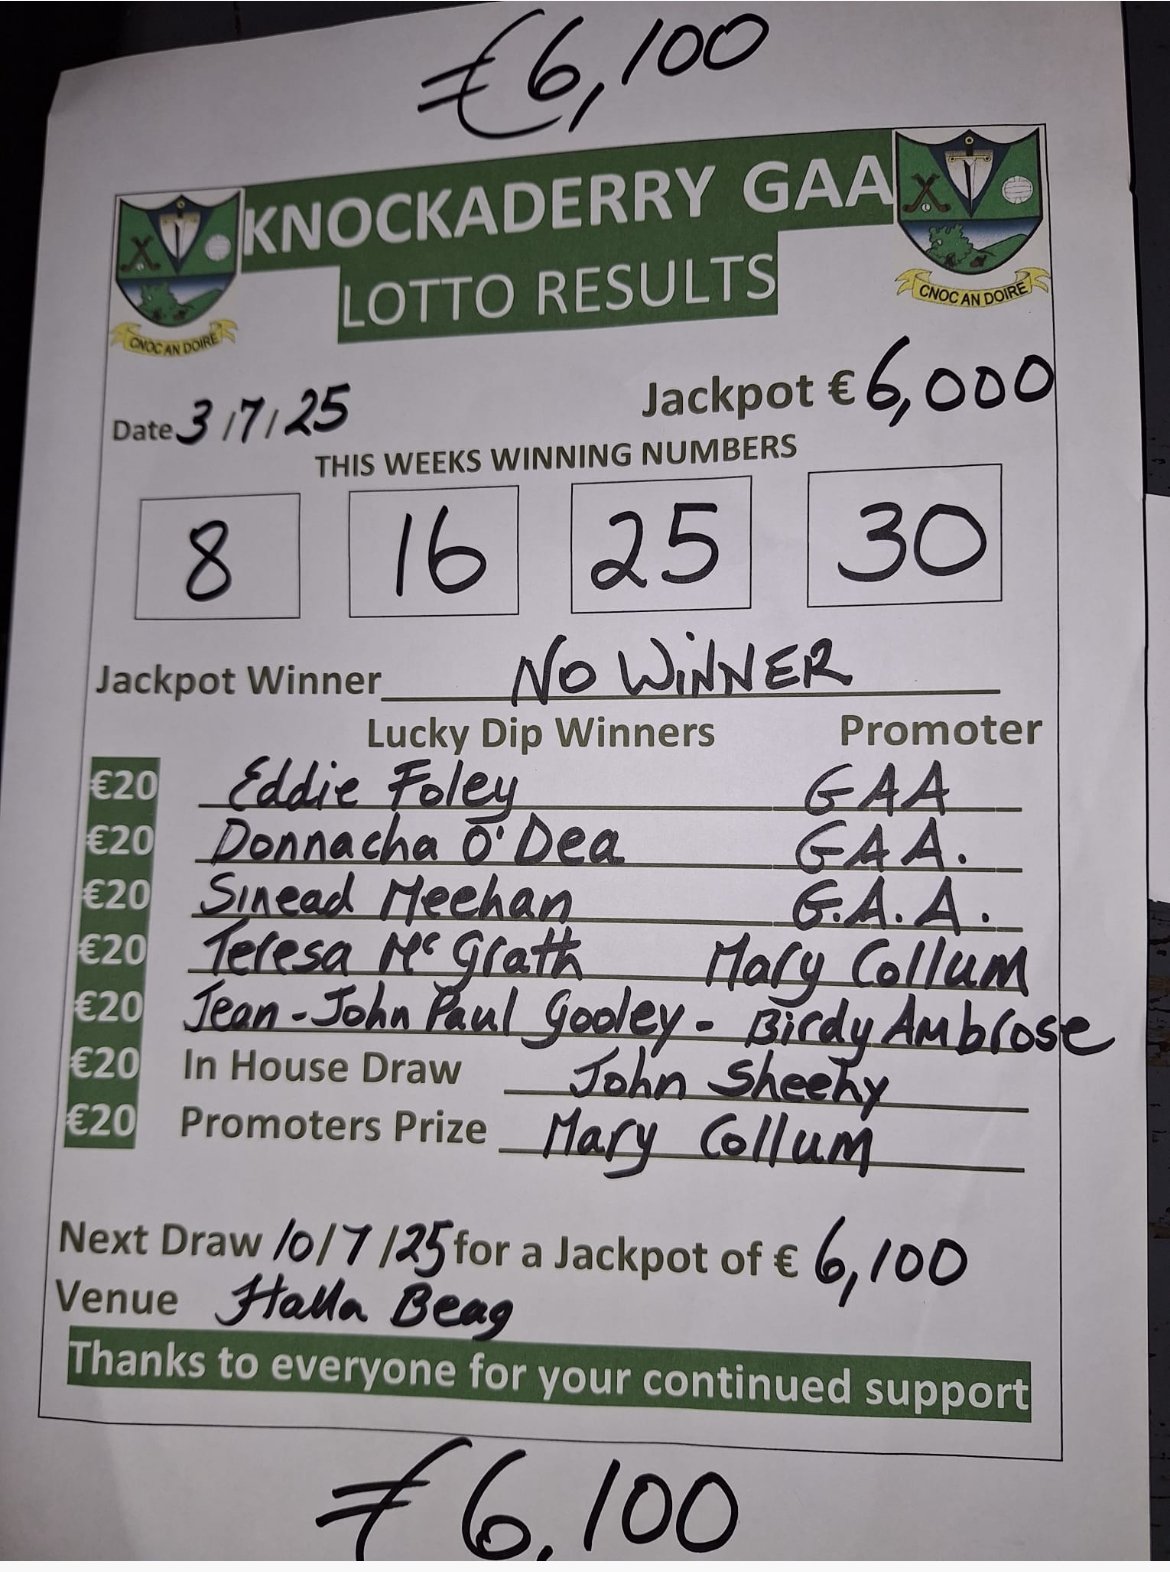 €6,100
KNOCKADERRY GAA
LOTTO RESULTS
CNOC AN DOIRE
CNOC AN DOIRE
Jackpot € 6,000
Date 3/7/25
THIS WEEKS WINNING NUMBERS
8 16 25 30
Jackpot Winner NO WINNER
Lucky Dip Winners Promoter
€20 Eddie Foley GAA
€20 Donnacha O'Dea GAA.
€20 Sinead Meehan G.A.A.
€20 Teresa McGrath Mary Collum
€20 Jean-John Paul Gooley - Birdy Ambrose
€20 In House Draw John Sheehy
€20 Promoters Prize Mary Collum
Next Draw 10/7/25 for a Jackpot of € 6,100
Venue Halla Beag
Thanks to everyone for your continued support
€6,100